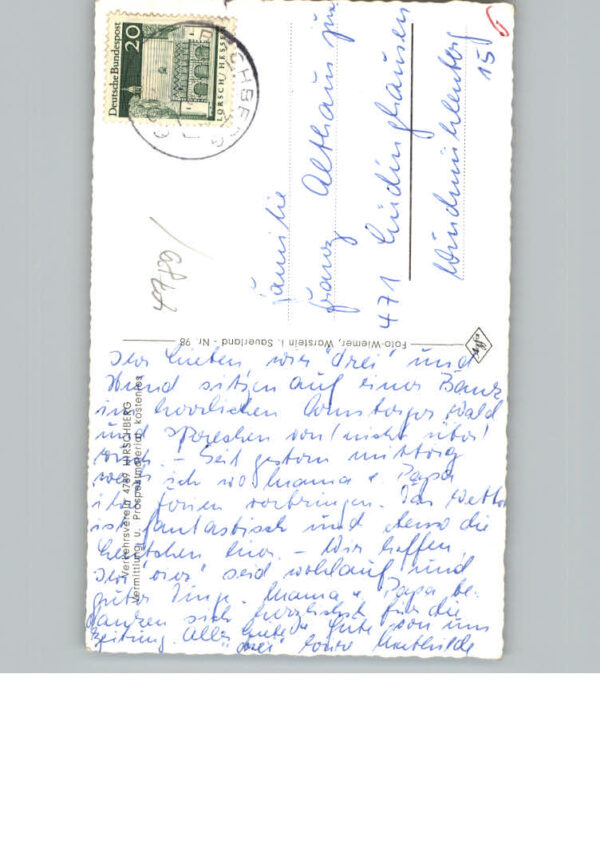 Deutsche Bundespost
20
LORSCH/HESSEN
Familie
Franz Althaus jun.
471 Lüdinghausen
Windmühlenberg
15
Foto-Wiemer, Warstein i. Sauerland - Nr. 98
Verkehrsverein 4789 HIRSCHBERG
Vermittlung u. Prospektmaterial kostenlos
Ihr Lieben, wir "drei" und
Hund sitzen auf einer Bank
im herrlichen Arnsberger Wald
und sprechen von (nicht über)
Euch. - Seit gestern mittag
weiß ich wo Mama u. Papa
ihre Ferien verbringen. Das Wetter
ist fantastisch und ebenso die
Leutchen hier. - Wir hoffen,
Ihr "vier" seid wohlauf und
guter Dinge. Mama u. Papa be-
danken sich herzlichst für die
Zeitung. Alles Liebe u. Gute von uns
"drei" Eure Mathilde